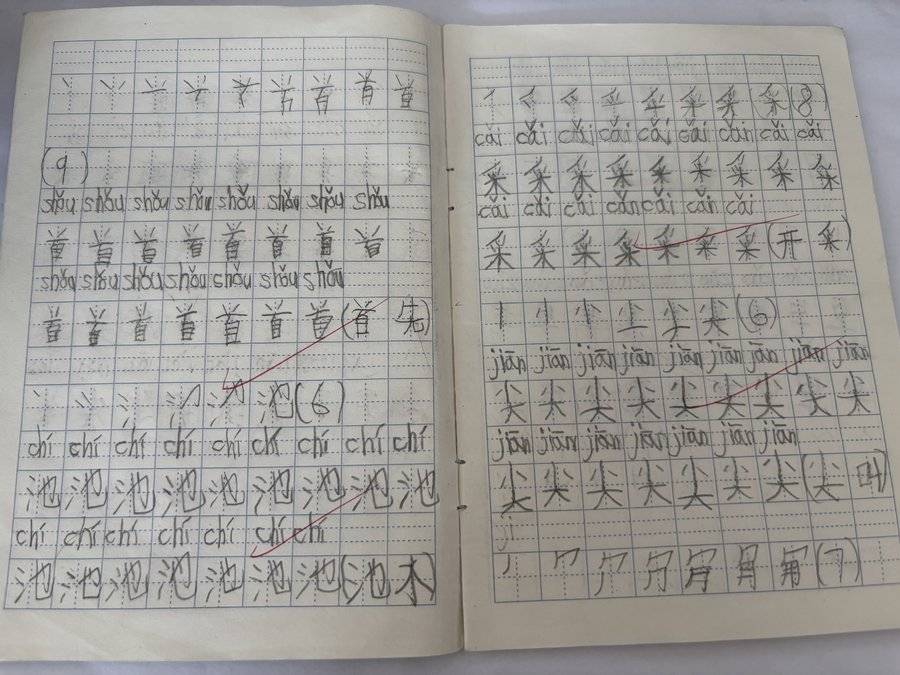 首
(9)
shǒu shǒu shǒu shǒu shǒu shǒu shǒu shǒu
首 首 首 首 首 首 首 首
shǒu shǒu shǒu shǒu shǒu shǒu shǒu
首 首 首 首 首 首 首 (首 先)
池 (6)
chí chí chí chí chí chí chí chí chí
池 池 池 池 池 池 池 池 池
chí chí chí chí chí chí chí
池 池 池 池 池 池 池 (池 木)
采 (8)
cǎi cǎi cǎi cǎi cǎi cǎi cǎi cǎi cǎi
采 采 采 采 采 采 采 采 采
cǎi cǎi cǎi cǎi cǎi cǎi cǎi
采 采 采 采 采 采 采 (开 采)
尖 (6)
jiān jiān jiān jiān jiān jiān jiān jiān jiān
尖 尖 尖 尖 尖 尖 尖 尖 尖
jiān jiān jiān jiān jiān jiān jiān
尖 尖 尖 尖 尖 尖 尖 (尖 叫)
ji
(7)